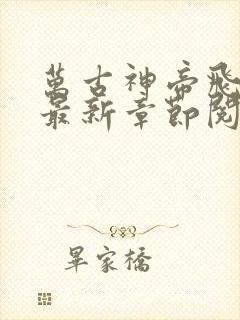 萬古神帝飛
最新章節閱
畢家橋